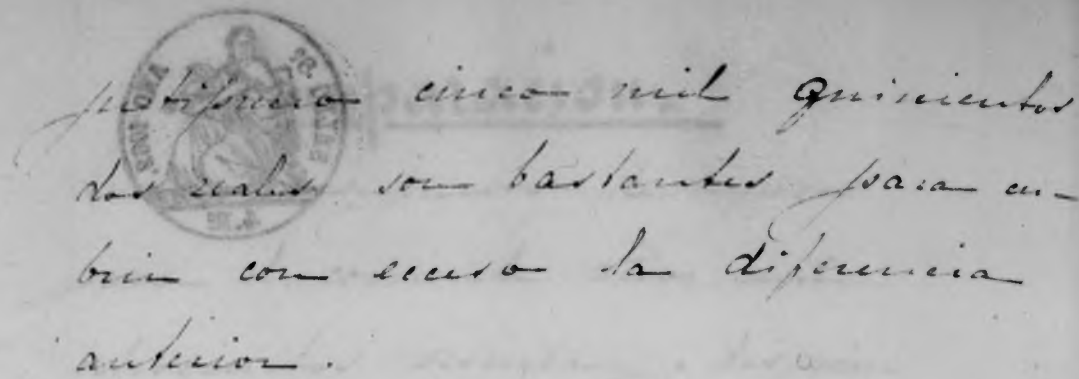 justiprecio cinco mil quinientos
los cuales son bastantes para cu-
brir con exceso la diferencia
anterior.